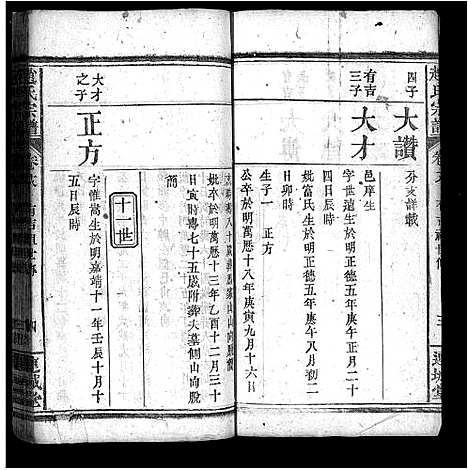 趙氏宗譜
三
連城堂
四子
大讚
分支詳載
有吉三子
大才
邑庠生
字世遠生於明正德五年庚午八月二十
四日辰時
妣富氏生於明正德五年庚午八月初二
日卯時
生子一 正方
公卒於明萬曆十八年庚寅九月十六日
妣卒於明萬曆十三年乙酉十二月三十
日寅時壽七十五歲附葬夫墓側山向脫
簡
十一世
大才之子
正方
字惟嵩生於明嘉靖十一年壬辰十月十
五日辰時
趙氏宗譜
四
連城堂